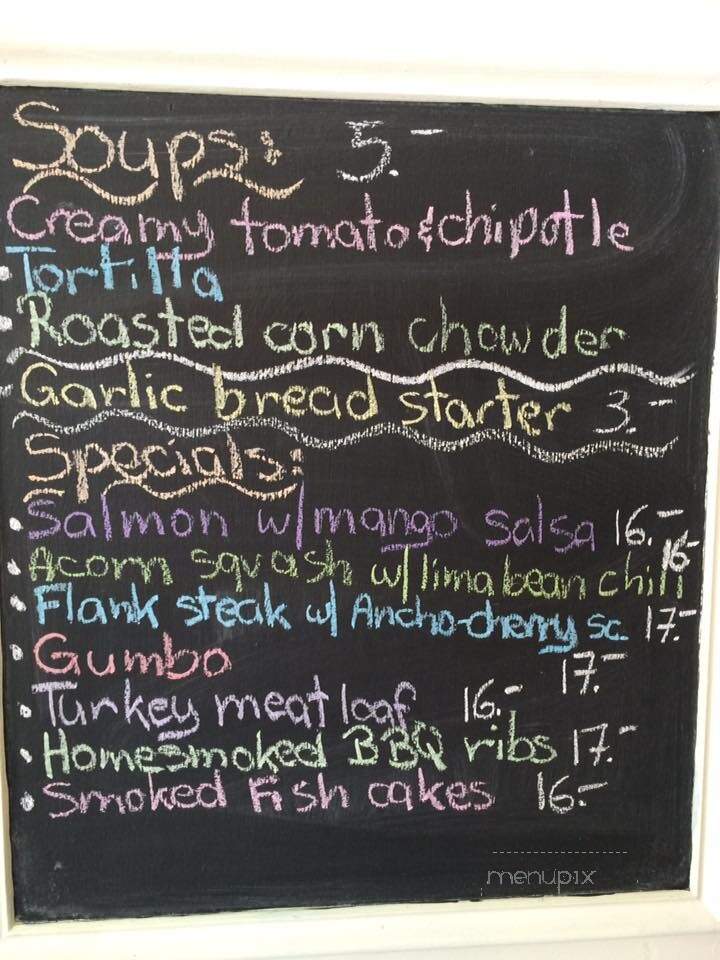 Soups: 5.-
Creamy tomato & chipotle
Tortilla
Roasted corn chowder
Garlic bread starter 3.-
Specials:
Salmon w/ mango salsa 16.-
Acorn squash w/ lima bean chili 16-
Flank steak w/ Ancho-cherry sc. 17.-
Gumbo 17.-
Turkey meat loaf 16.-
Homesmoked BBQ ribs 17.-
Smoked Fish cakes 16.-
menupix